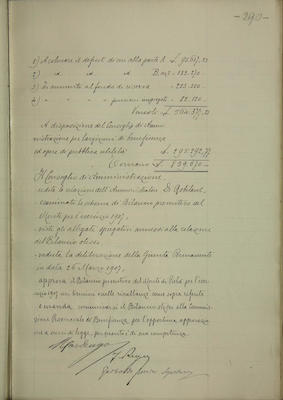 -290-
1) A colmare il deficit di cui alla parte A L. 90.617.
2) id id id B.
3) In aumento al fondo di riserva
4) " " " pensioni impiegati
A disposizione del Consiglio di Ammi-
nistrazione per largizioni di beneficenza
ed opere di pubblica utilità L.
Il Consiglio di Amministrazione,
- udita la relazione dell'Amministratore S. Robilant,
- esaminato lo schema di Bilancio preventivo del
Monte per l'esercizio 1907,
- visti gli allegati spieganti annessi alla relazione
del Bilancio stesso,
- veduta la deliberazione della Giunta Permanente
in data 26 Marzo 1907,
approva il Bilancio preventivo del Monte di Pietà per l'eser-
cizio 1907 nelle risultanze come sopra riferite
e manda comunicarsi il Bilancio stesso alla Commis-
sione Provinciale di Beneficenza per l'opportuna approvazio-
ne a sensi di legge, per quanto è di sua competenza.